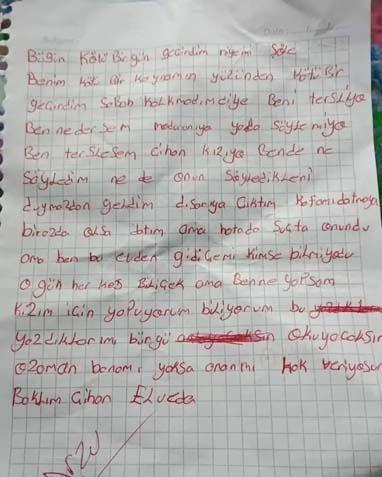 Bügün Kötü Bir gün gecirdim niyemi Şöle
Benim kötü Bir Kaynanın yüzünden Kötü Bir
gecirdim Sabah Kalkmadım diye Beni tersliyo
Ben ne dersem yada Söylemiyo
Ben terslesem Cihan Kızıyo Bende ne
Söyledim ne de onun Söyledikleni
duymazdan geldim dışarıya Ciktım Kafamı
birazda olsa ama hatada Suçta onundu
ama ben bu evden gidicemi kimse bilmiyodu
o gün her kes Bilicek ama Benne yaPsam
Kızım icin yaPıyorum biliyorum bu
yazdıklarımı bürgü Okuyocaksın
ozaman banamı yoksa ananmı hak veriyosun
Baktım Cihan ELveda
Arzu